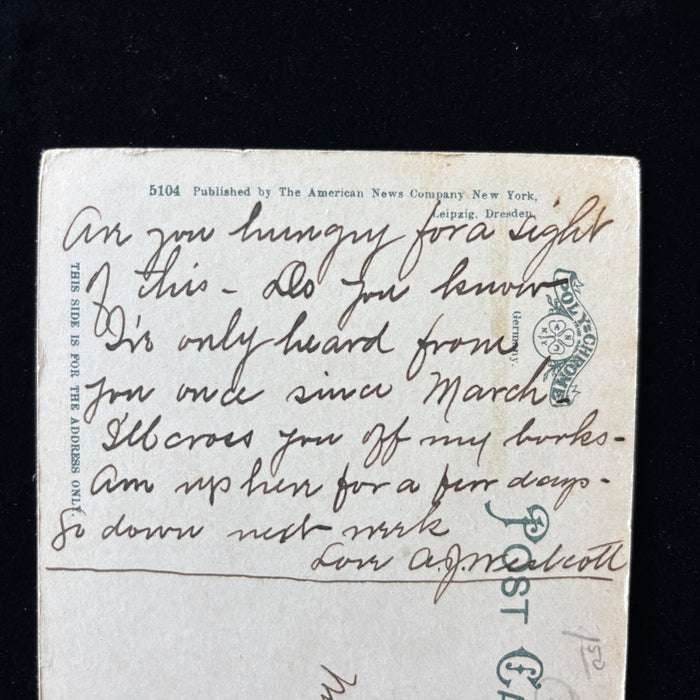 5104 Published by The American News Company New York,
Leipzig, Dresden
Are you hungry for a sight
of this - Do you know
I've only heard from
you once since March!
I'll cross you off my books -
Am up here for a few days -
Go down next week
Love A. J. Westcott
THIS SIDE IS FOR THE ADDRESS ONLY.
Germany.
POLY-CHROME
POST
1 50